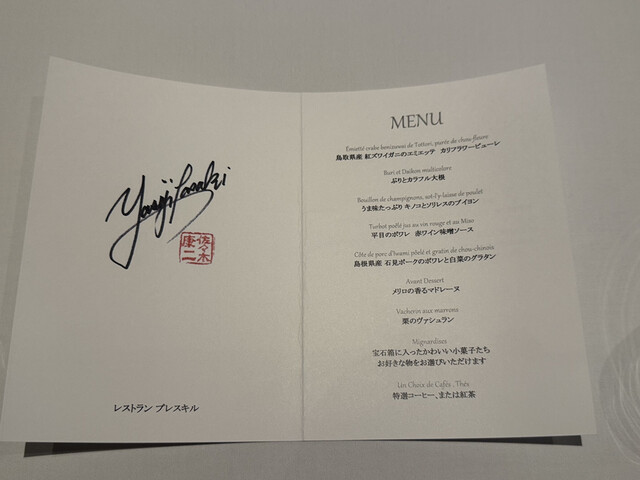 佐々木
康二
レストラン プレスキル
MENU
Emietté crabe benizuwai de Tottori, purée de chou-fleure
鳥取県産 紅ズワイガニのエミエッテ カリフラワーピューレ
Buri et Daikon multicolore
ぶりとカラフル大根
Bouillon de champignons, sot-l'y-laisse de poulet
うま味たっぷり キノコとソリレスのブイヨン
Turbot poêlé jus au vin rouge et au Miso
平目のポワレ 赤ワイン味噌ソース
Côte de porc d'Iwami pôelé et gratin de chou chinois
島根県産 石見ポークのポワレと白菜のグラタン
Avant Dessert
メリロの香るマドレーヌ
Vacheros aux marrons
栗のヴァシュラン
Mignardises
宝石箱に入ったかわいい小菓子たち
お好きな物をお選びいただけます
Un Choix de Cafés , Thés
特選コーヒー、または紅茶